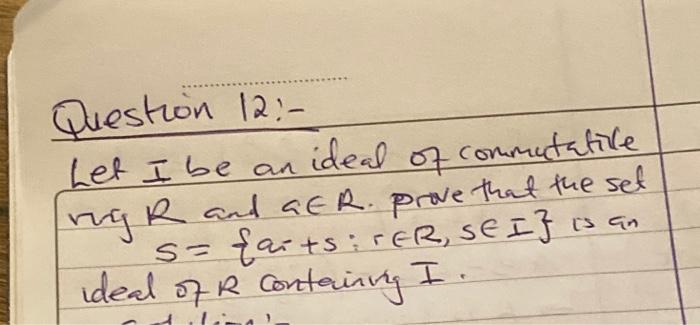 Question 12:-
Let I be an ideal of commutative
ring R and a∈R. prove that the set
S = {ar+s : r∈R, s∈I} is an
ideal of R containing I.